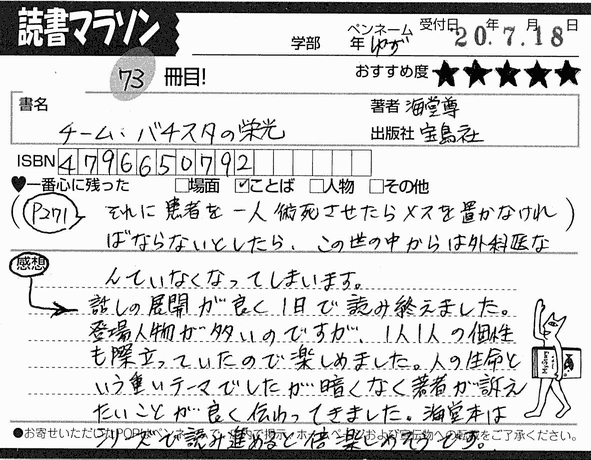 読書マラソン
73 冊目!
学部 年 ペンネーム ゆが 受付日 年 月 日 20.7.18
おすすめ度 ★★★★★
書名
チーム・バチスタの栄光
著者 海堂尊
出版社 宝島社
ISBN 4796650792
♥一番心に残った □場面 ☑ことば □人物 □その他
(P271) それに患者を一人術死させたらメスを置かなけれ
ばならないとしたら、この世の中からは外科医な
んていなくなってしまいます。
感想
話しの展開が良く1日で読み終えました。
登場人物が多いのですが、1人1人の個性
も際立っていたので楽しめました。人の生命と
いう重いテーマでしたが暗くなく著者が訴え
たいことが良く伝わってきました。海堂本は
シリーズで読み進めると倍楽しめそうです。
●お寄せいただいたPOPはペンネームで、店内で掲示・ホームページおよび宣伝物への転載をご了承ください。